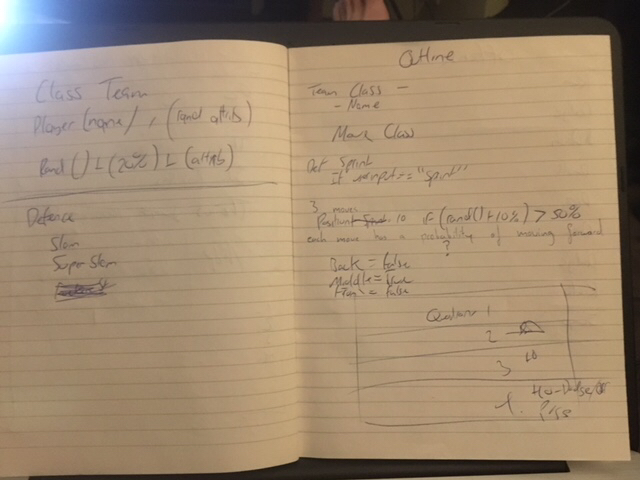 Class Team
Player (name), (rand attrib)
Rand () + (20%) + (attrib)
Defence
Slam
Super Slam
Outline
Team Class -
- Name
Move Class
Def Sprint
If input == "Sprint"
3 moves
Position 10 if (rand() + 10%) > 50%
each move has a probability of moving forward
?
Back = False
Middle = True
Front = False
1
2
3 10